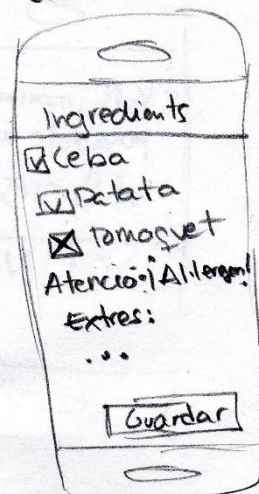 Ingredients
Ceba
Patata
Tomaquet
Atenció: ¡Al·lergen!
Extres:
...
Guardar